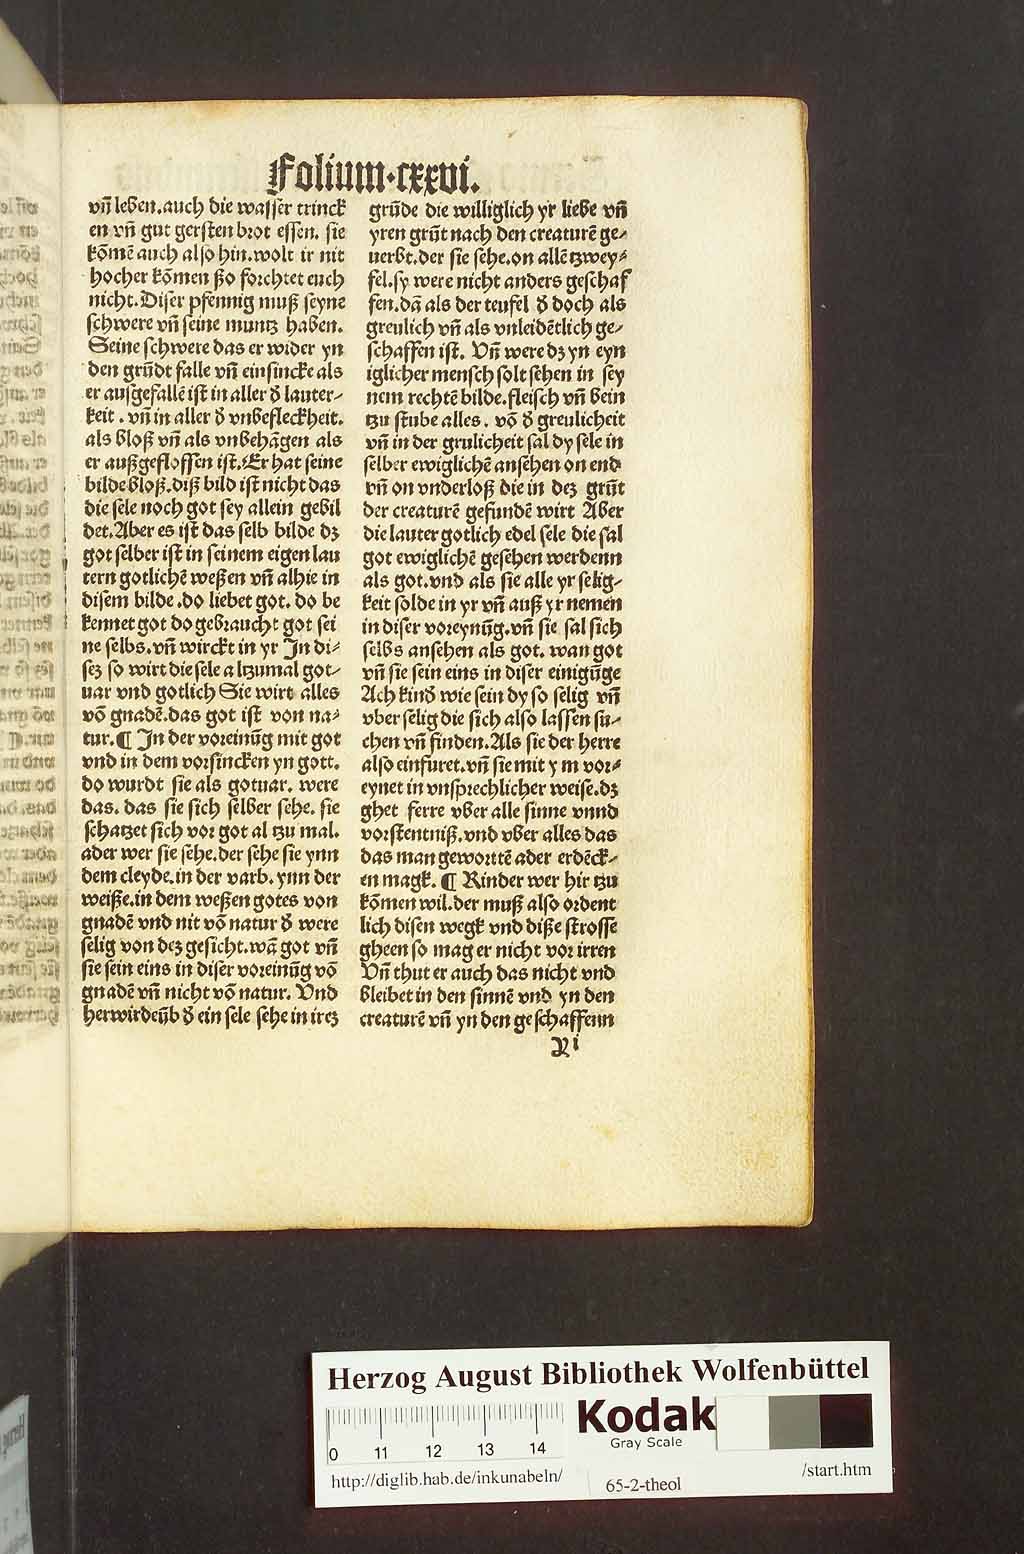 Folium·cxxvi.
vn̄ leben.auch die wasser trinck
en vn̄ gut gersten brot essen. sie
kōmē auch also hin.wolt ir nit
hocher kōmen ßo forchtet euch
nicht.Diser pfennig muß seyne
schwere vn̄ seine muntz haben.
Seine schwere das er wider yn
den grūdt falle vn̄ einsincke als
er ausgefallē ist in aller d̄ lauter-
keit . vn̄ in aller d̄ vnbefleckheit.
als bloß vn̄ als vnbehāgen als
er außgeflossen ist.Er hat seine
bilde bloß.diß bild ist nicht das
die sele noch got sey allein gebil
det.Aber es ist das selb bilde dz
got selber ist in seinem eigen lau
tern gotlichē weßen vn̄ alhie in
disem bilde .do liebet got. do be
kennet got do gebraucht got sei
ne selbs.vn̄ wirckt in yr Jn di-
sez so wirt die sele a ltzumal got-
uar vnd gotlich Sie wirt alles
vō gnadē.das got ist von na-
tur.¶ Jn der voreinūg mit got
vnd in dem vorsincken yn gott.
do wurdt sie als gotuar. were
das. das sie sich selber sehe. sie
schatzet sich vor got al tzu mal.
ader wer sie sehe.der sehe sie ynn
dem cleyde.in der varb. ynn der
weiße.in dem weßen gotes von
gnadē vnd nit vō natur d̄ were
selig von dez gesicht.wā got vn̄
sie sein eins in diser voreinūg vō
gnadē vn̄ nicht vō natur. Vnd
herwirdeūb d̄ ein sele sehe in irez
grūde die williglich yr liebe vn̄
yren grūt nach den creaturē ge-
uerbt.der sie sehe.on allē tzwey-
fel.sy were nicht anders geschaf
fen.dā als der teufel d̄ doch als
greulich vn̄ als vnleidētlich ge-
schaffen ist. Vn̄ were dz yn eyn
iglicher mensch solt sehen in sey
nem rechtē bilde.fleisch vn̄ bein
tzu stube alles . vō d̄ greulicheit
vn̄ in der grulicheit sal dy sele in
selber ewiglichē ansehen on end
vn̄ on vnderloß die in dez grūt
der creaturē gefundē wirt Aber
die lauter gotlich edel sele die sal
got ewiglichē gesehen werdenn
als got.vnd als sie alle yr selig-
keit solde in yr vn̄ auß yr nemen
in diser voreynūg.vn̄ sie sal sich
selbs ansehen als got. wan got
vn̄ sie sein eins in diser einigūge
Ach kind̄ wie sein dy so selig vn̄
vber selig die sich also lassen su-
chen vn̄ finden.Als sie der herre
also einfuret.vn̄ sie mit y m vor-
eynet in vnsprechlicher weise.dz
ghet ferre vber alle sinne vnnd
vorstentniß.vnd vber alles das
das man gewortē ader erdēck-
en magk. ¶ Kinder wer hir tzu
kōmen wil.der muß also ordent
lich disen wegk vnd diße strosse
gheen so mag er nicht vor irren
Vn̄ thut er auch das nicht vnd
bleibet in den sinnē vnd yn den
creaturē vn̄ yn den geschaffenn
Herzog August Bibliothek Wolfenbüttel
Kodak
Gray Scale
0 11 12 13 14
http://diglib.hab.de/inkunabeln/
65-2-theol
/start.htm